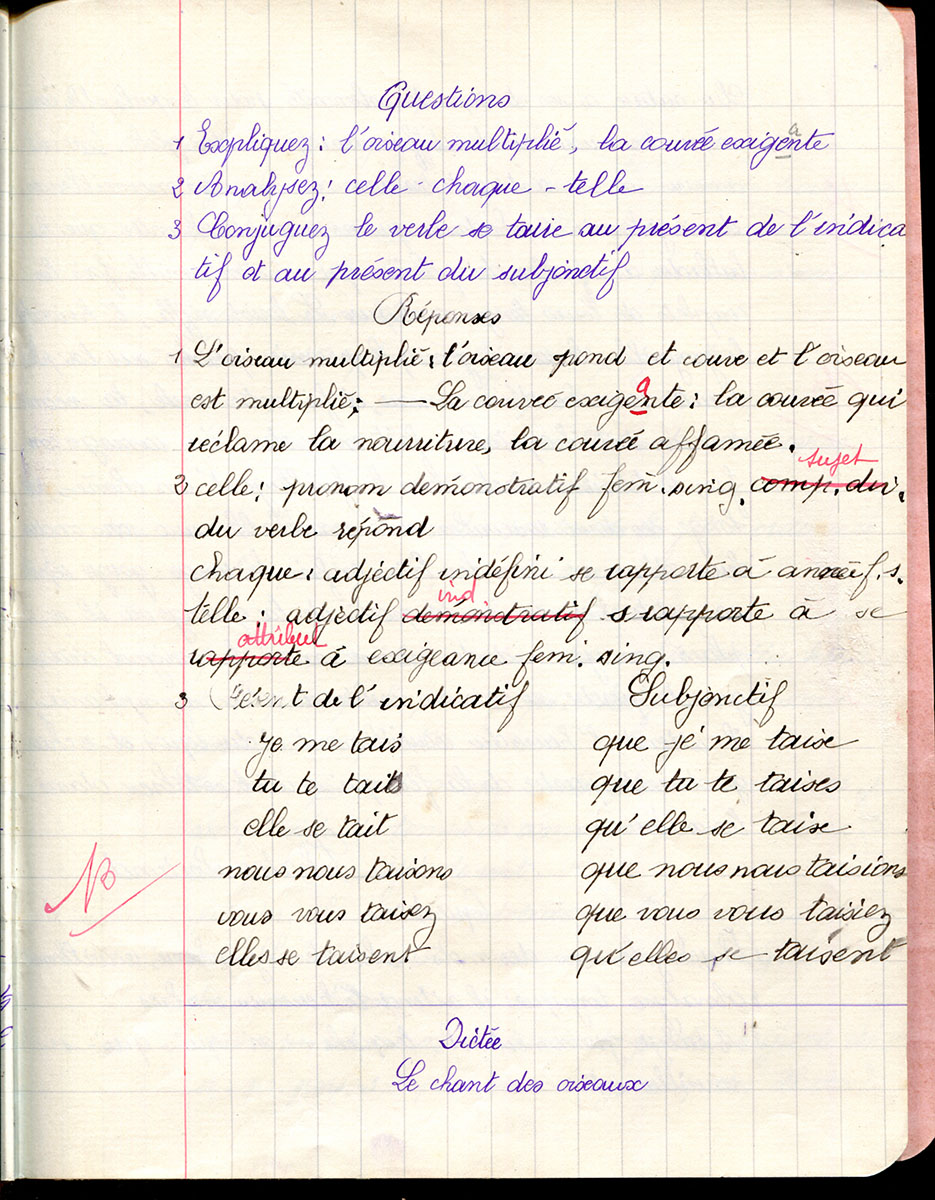 Questions
1 Expliquez : l'oiseau multiplié, la couvée exigente
a
2 Analysez : celle - chaque - telle
3 Conjuguez le verbe se taire au présent de l'indica
tif et au présent du subjonctif
Réponses
1 L'oiseau multiplié : l'oiseau pond et couve et l'oiseau
est multiplié; — La couvée exigente : la couvée qui
a
réclame la nourriture, la couvée affamée.
sujet
2 celle : pronom démonstratif fém. sing. comp. dir.
du verbe répond
chaque : adjectif indéfini se rapporte à année f. s.
ind
telle : adjectif démonstratif s rapporte à se
attribut
rapporte à exigeance fem. sing.
3 Présent de l'indicatif Subjonctif
Je me tais que je me taise
tu te tais que tu te taises
elle se tait qu'elle se taise
nous nous taisons que nous nous taisions
vous vous taisez que vous vous taisiez
elles se taisent qu'elles se taisent
Dictée
Le chant des oiseaux